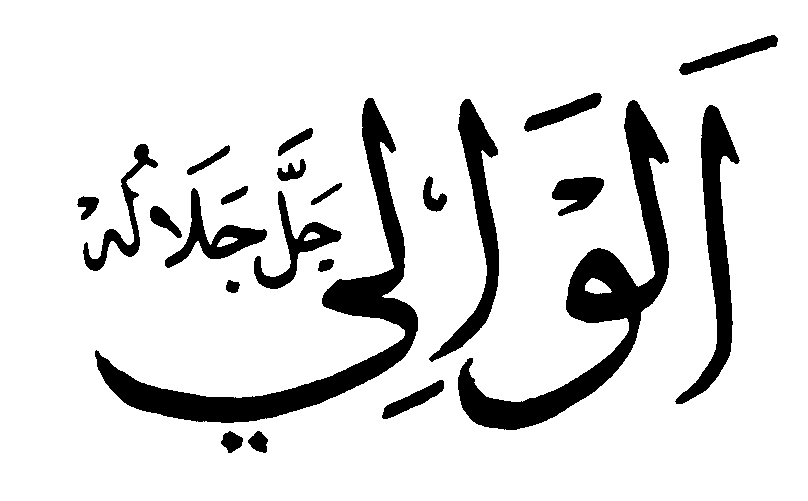 اَلْوَالِي جَلَّ جَلَالُهُ